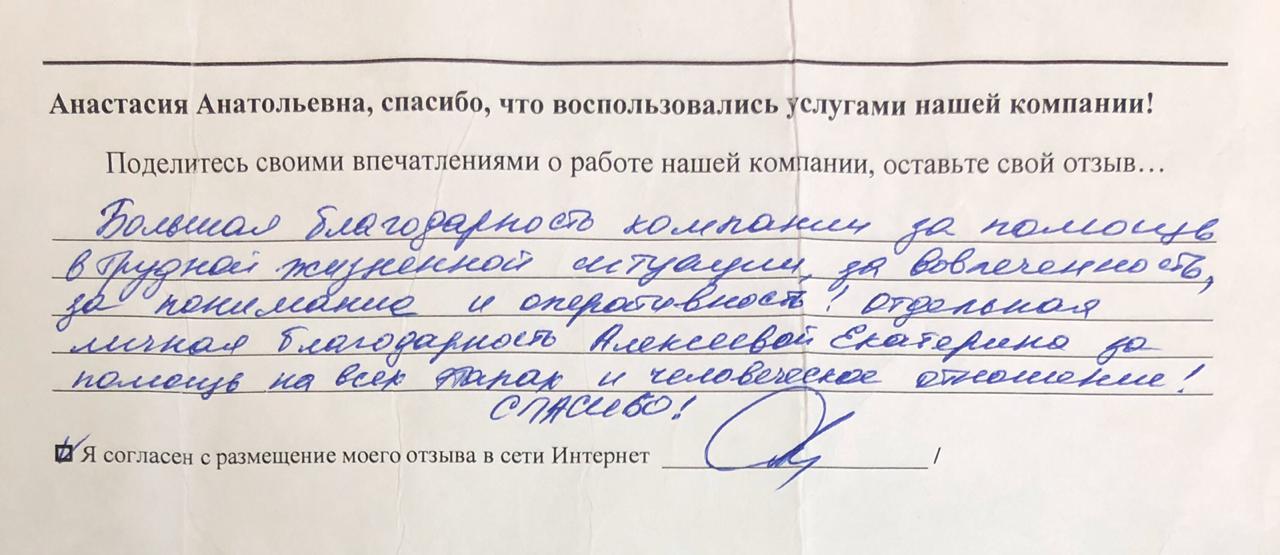 Анастасия Анатольевна, спасибо, что воспользовались услугами нашей компании!
Поделитесь своими впечатлениями о работе нашей компании, оставьте свой отзыв…
Большая благодарность компании за помощь
в трудной жизненной ситуации, за вовлеченность,
за понимание и оперативность! отдельная
личная благодарность Алексеевой Екатерина за
помощь на всех этапах и человеческое отношение!
СПАСИБО!
Я согласен с размещение моего отзыва в сети Интернет /